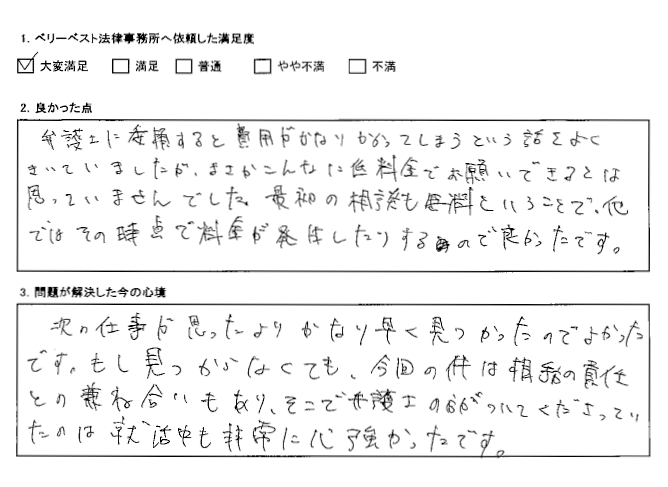 1. ベリーベスト法律事務所へ依頼した満足度
☑ 大変満足 □ 満足 □ 普通 □ やや不満 □ 不満
2. 良かった点
弁護士に委頼すると費用がかなりかかってしまうという話をよく
きいていましたが、まさかこんなに低料金でお願いできるとは
思っていませんでした。最初の相談も無料ということで、他
ではその時点で料金が発生したりするので良かったです。
3. 問題が解決した今の心境
次の仕事が思ったよりかなり早く見つかったのでよかった
です。もし見つからなくても、今回の件は相手の責任
との兼ね合いもあり、そこで弁護士の方がついてくださってい
たのは就活中も非常に心強かったです。